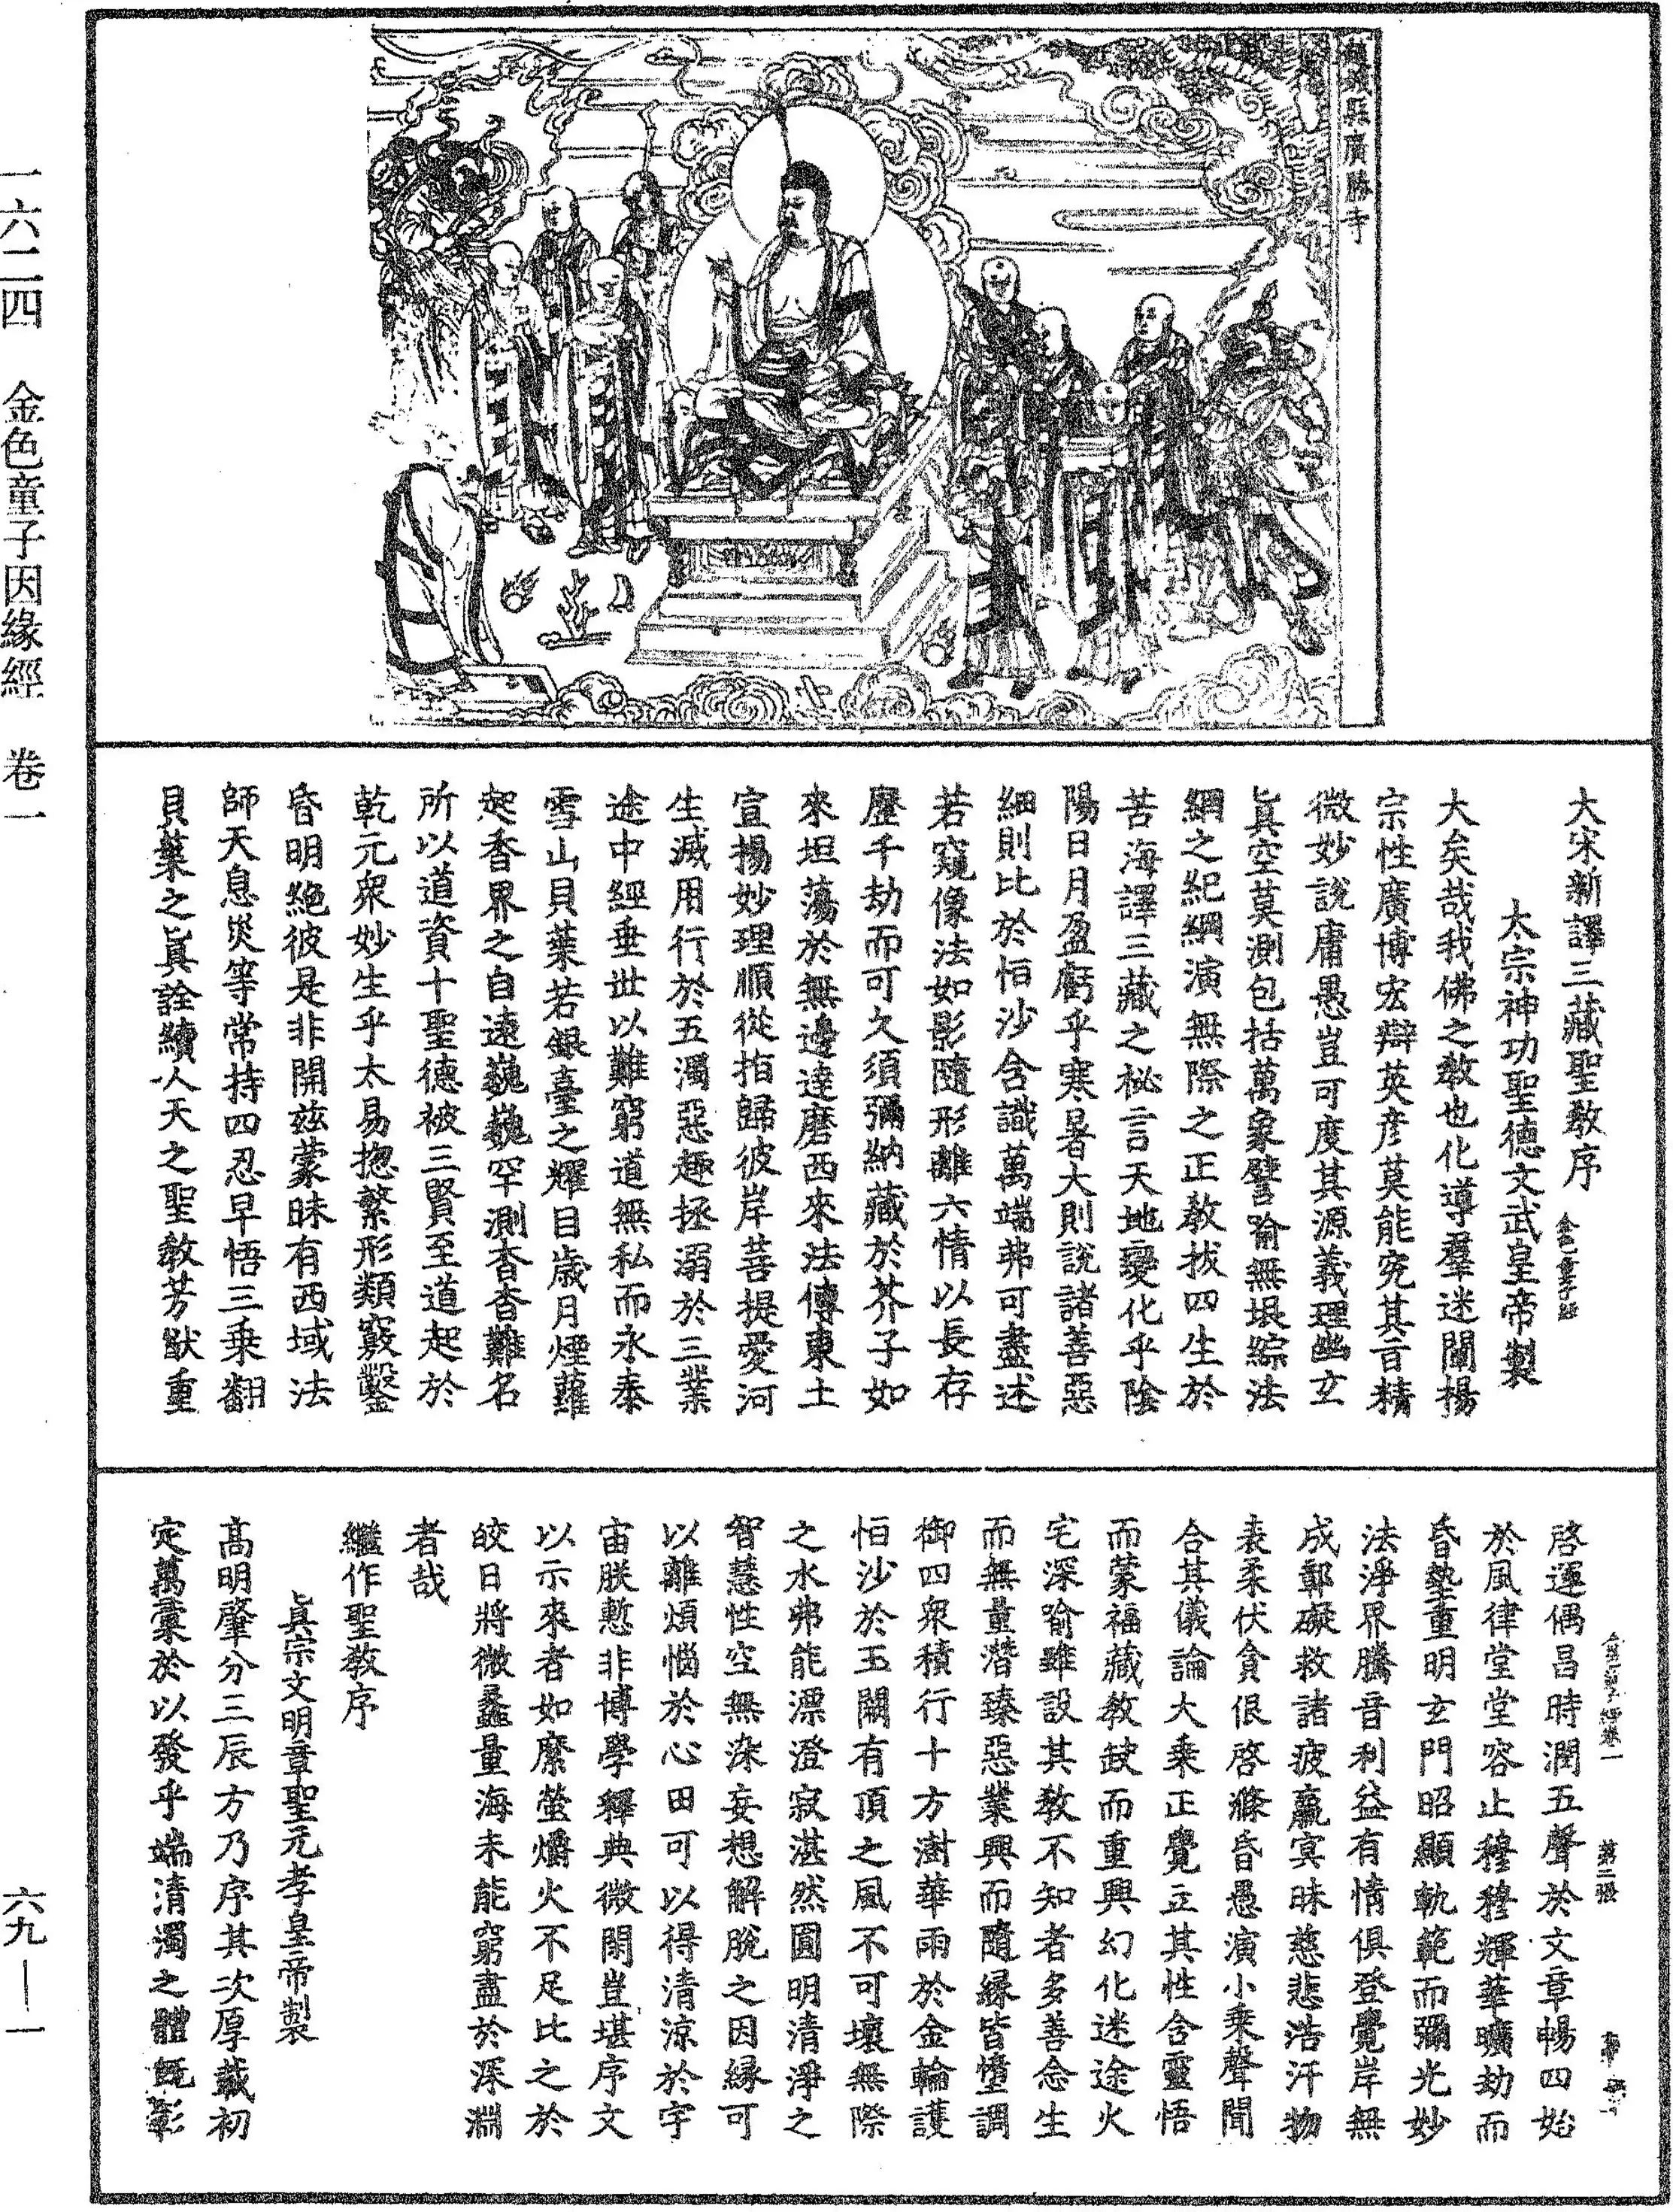 趙城縣廣勝寺
大宋新譯三藏聖教序 金色童子經
太宗神功聖德文武皇帝製
大矣哉我佛之教也化導羣迷闡揚
宗性廣博宏辯英彥莫能究其旨精
微妙說庸愚豈可度其源義理幽玄
真空莫測包括萬象譬喻無垠綜法
網之紀綱演無際之正教拔四生於
苦海譯三藏之祕言天地變化乎陰
陽日月盈虧乎寒暑大則說諸善惡
細則比於恒沙含識萬端弗可盡述
若窺像法如影隨形離六情以長存
歷千劫而可久須彌納藏於芥子如
來坦蕩於無邊達磨西來法傳東土
宣揚妙理順從指歸彼岸菩提愛河
生滅用行於五濁惡趣拯溺於三業
途中經垂世以難窮道無私而永泰
雪山貝葉若銀臺之耀目歲月煙蘿
起香界之自遠巍巍罕測杳杳難名
所以道資十聖德被三賢至道起於
乾元衆妙生乎太易揔繁形類竅鑿
昏明絶彼是非開茲蒙昧有西域法
師天息災等常持四忍早悟三乘翻
貝葉之真詮續人天之聖教芳猷重
啓運偶昌時潤五聲於文章暢四始
於風律堂堂容止穆穆輝華曠劫而
昏墊重明玄門昭顯軌範而彌光妙
法淨界騰音利益有情俱登覺岸無
成鄣礙救諸疲羸冥昧慈悲浩汗物
表柔伏貪佷啓滌昏愚演小乘聲聞
合其儀論大乘正覺立其性含靈悟
而蒙福藏教缺而重興幻化迷途火
宅深喻雖設其教不知者多善念生
而無量潛臻惡業興而隨緣皆墮調
御四衆積行十方澍華雨於金輪護
恒沙於玉闕有頂之風不可壞無際
之水弗能漂澄寂湛然圓明清淨之
智慧性空無染妄想解脫之因緣可
以離煩惱於心田可以得清涼於宇
宙朕慙非博學釋典微閑豈堪序文
以示來者如縻螢爝火不足比之於
皎日將微蠡量海未能窮盡於深淵
者哉
繼作聖教序
真宗文明章聖元孝皇帝製
高明肇分三辰方乃序其次厚載初
定萬彙於以發乎端清濁之體旣彰
一六二四 金色童子因緣經 卷一
六九—一